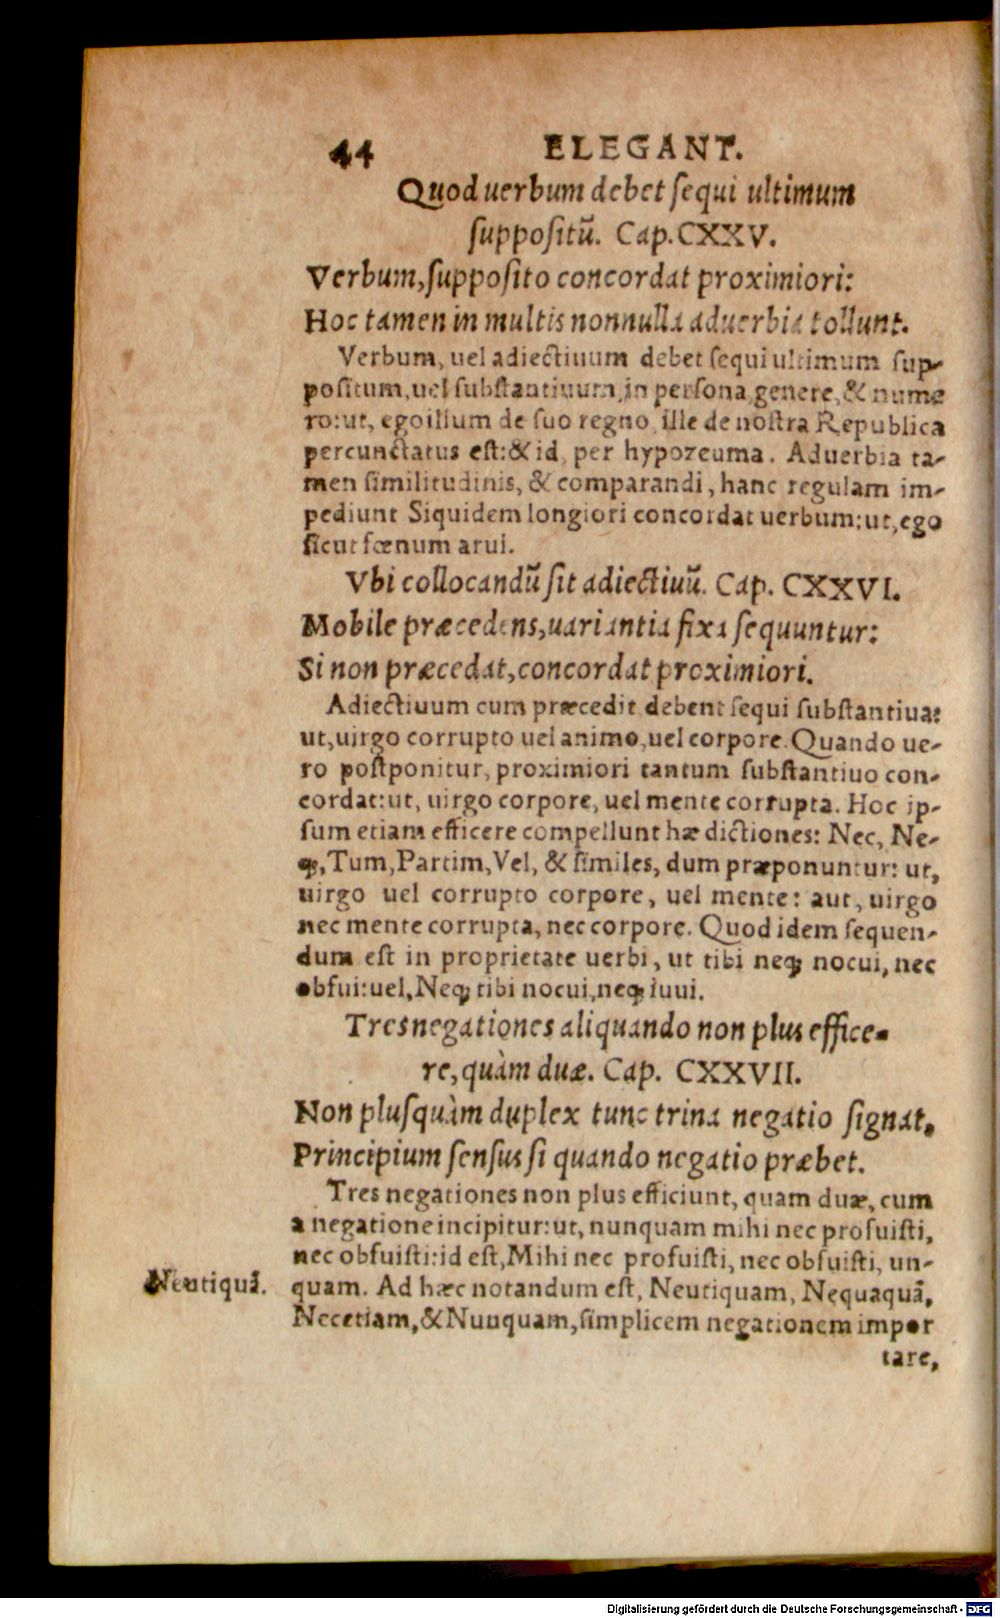 44 ELEGANT.
Quod uerbum debet ſequi ultimum
ſuppoſitū. Cap. CXXV.
Verbum, ſuppoſito concordat proximiori:
Hoc tamen in multis nonnulla aduerbia tollunt.
Verbum, uel adiectiuum debet ſequi ultimum ſup-
poſitum, uel ſubſtantiuum, in perſona, genere, & nume
ro: ut, ego illum de ſuo regno, ille de noſtra Republica
percunctatus eſt: & id, per hypozeuma. Aduerbia ta-
men ſimilitudinis, & comparandi, hanc regulam im-
pediunt Siquidem longiori concordat uerbum: ut, ego
ſicut fœnum arui.
Vbi collocandū ſit adiectiuū. Cap. CXXVI.
Mobile præcedens, uariantia fixa ſequuntur:
Si non præcedat, concordat proximiori.
Adiectiuum cum præcedit debent ſequi ſubſtantiua:
ut, uirgo corrupto uel animo, uel corpore. Quando ue-
ro poſtponitur, proximiori tantum ſubſtantiuo con-
cordat: ut, uirgo corpore, uel mente corrupta. Hoc ip-
ſum etiam efficere compellunt hæ dictiones: Nec, Ne-
q;, Tum, Partim, Vel, & ſimiles, dum præponuntur: ut,
uirgo uel corrupto corpore, uel mente: aut, uirgo
nec mente corrupta, nec corpore. Quod idem ſequen-
dum eſt in proprietate uerbi, ut tibi neq; nocui, nec
obfui: uel, Neq; tibi nocui, neq; iuui.
Tres negationes aliquando non plus effice-
re, quàm duæ. Cap. CXXVII.
Non pluſquàm duplex tunc trina negatio ſignat,
Principium ſenſus ſi quando negatio præbet.
Tres negationes non plus efficiunt, quam duæ, cum
a negatione incipitur: ut, nunquam mihi nec profuiſti,
nec obfuiſti: id eſt, Mihi nec profuiſti, nec obfuiſti, un-
Neutiquā. quam. Ad hæc notandum eſt, Neutiquam, Nequaquā,
Necetiam, & Nunquam, ſimplicem negationem impor
tare,
Digitalisierung gefördert durch die Deutsche Forschungsgemeinschaft - DFG